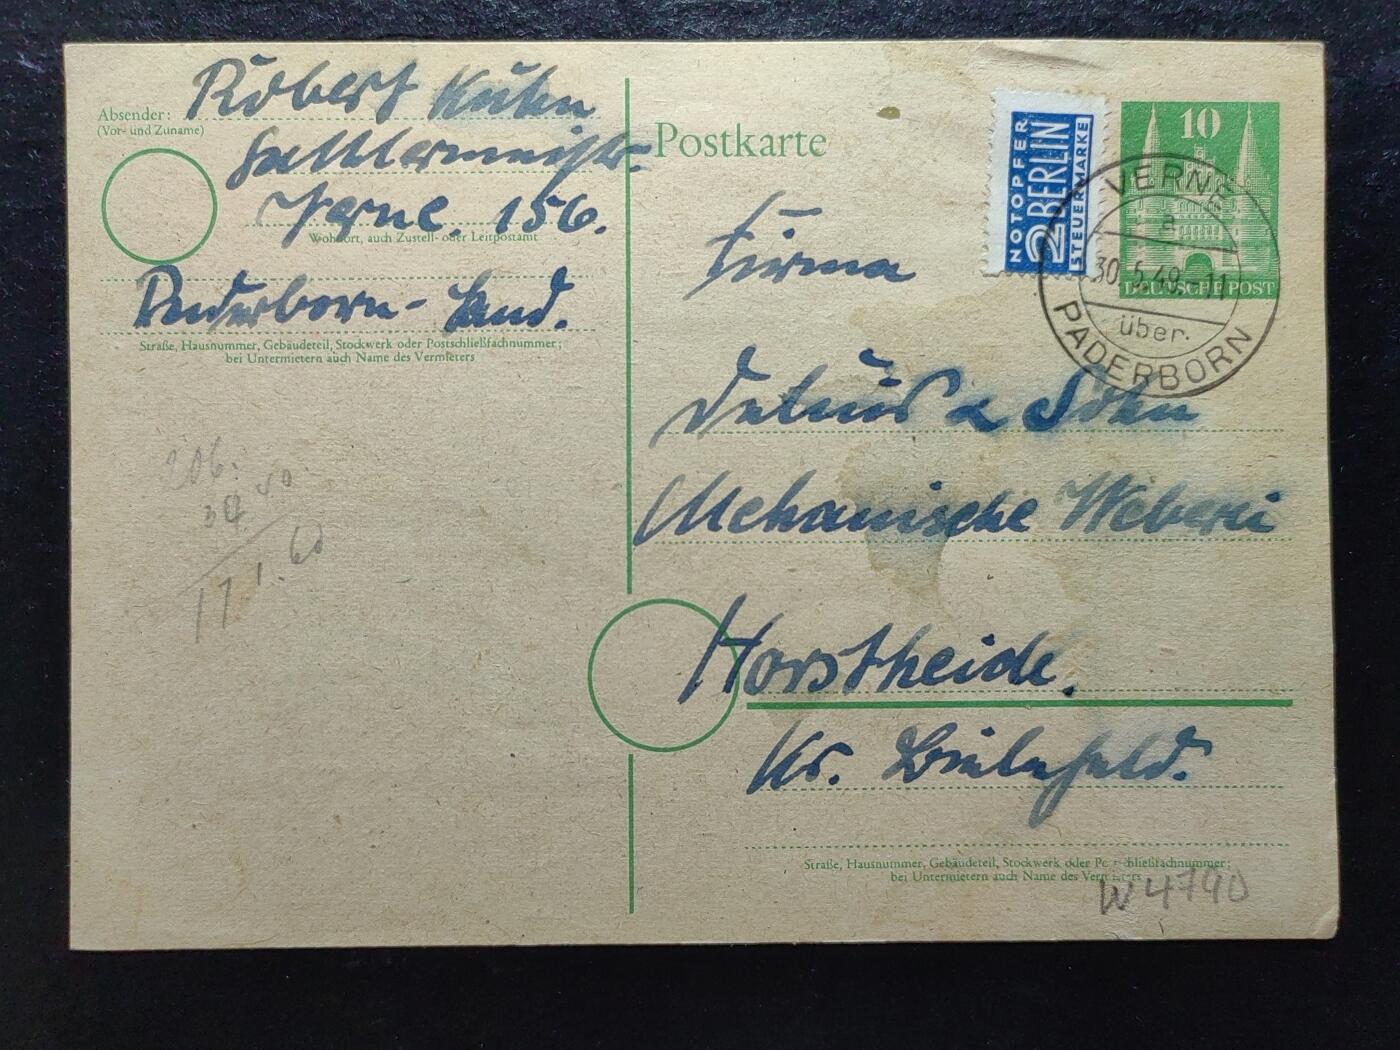 Absender:
(Vor- und Zuname)
Robert Kühn
Sattlermeister
Verne. 156.
Wohnort, auch Zustell- oder Leitpostamt
Paderborn-Land.
Straße, Hausnummer, Gebäudeteil, Stockwerk oder Postschließfachnummer;
bei Untermietern auch Name des Vermieters
206.
34.40
171.60
Postkarte
NOTOPFER
2 BERLIN
STEUERMARKE
10
DEUTSCHE POST
VERNE
a
30.5.49.-11
über.
PADERBORN
Firma
Delius & Sohn
Mechanische Weberei
Horstheide.
Kr. Bielefeld.
Straße, Hausnummer, Gebäudeteil, Stockwerk oder Postschließfachnummer;
bei Untermietern auch Name des Vermieters
W4790